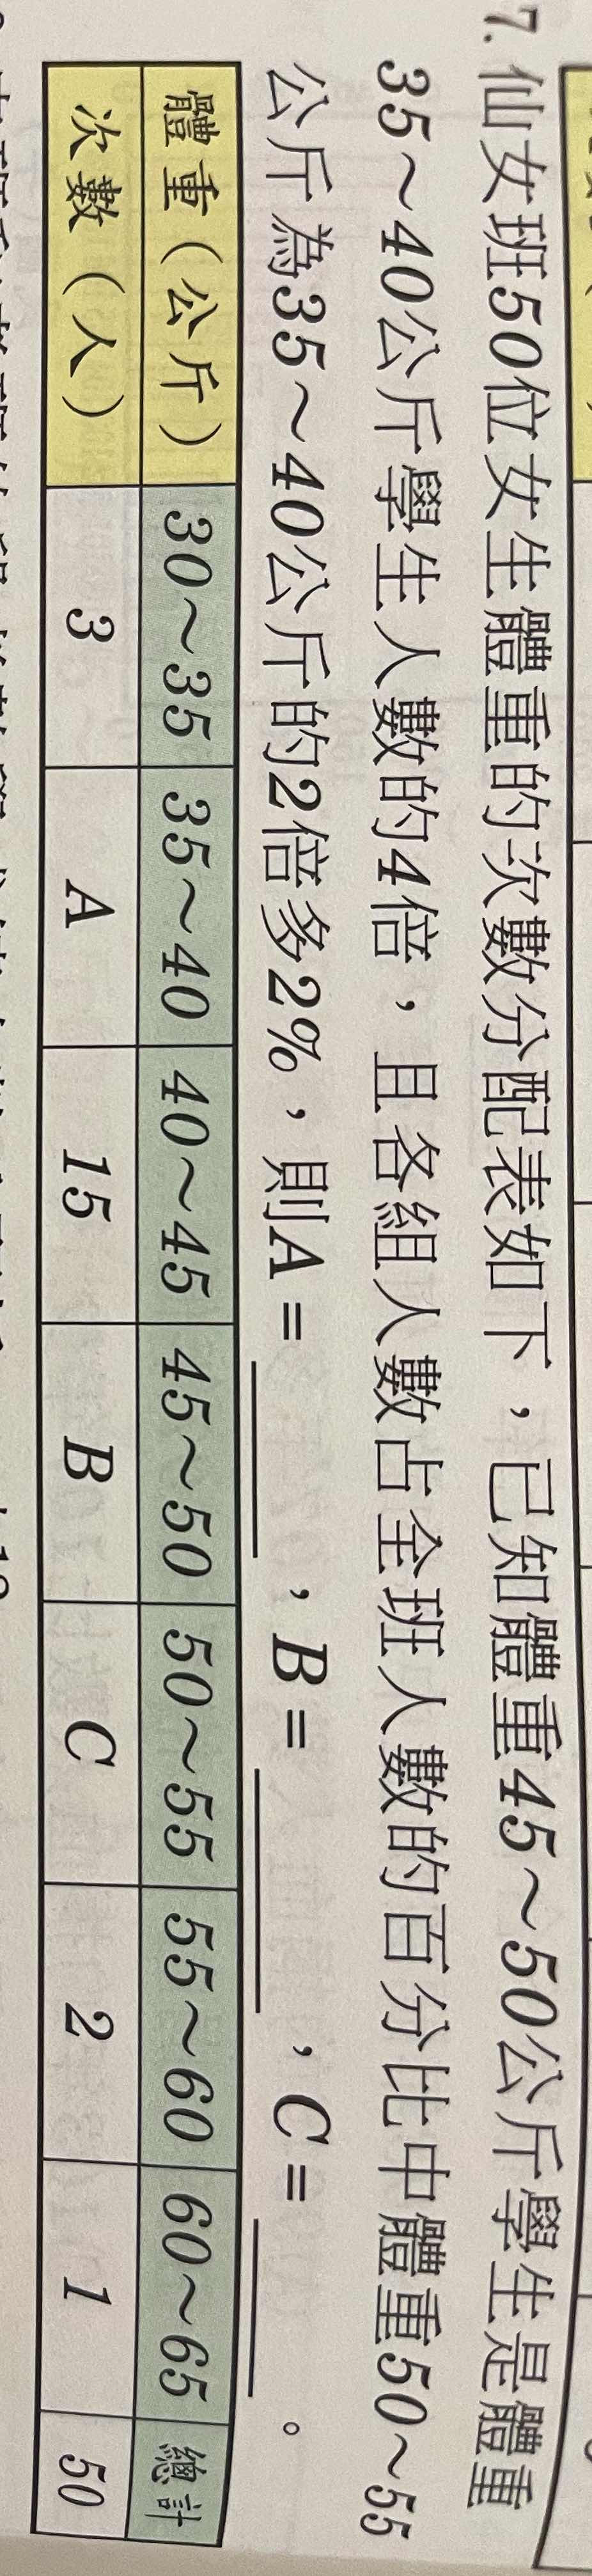 7. 仙女班50位女生體重的次數分配表如下，已知體重45～50公斤學生是體重
35～40公斤學生人數的4倍，且各組人數占全班人數的百分比中體重50～55
公斤為35～40公斤的2倍多2%，則A=＿＿＿，B=＿＿＿，C=＿＿＿。
體重（公斤） 30～35 35～40 40～45 45～50 50～55 55～60 60～65 總計
次數（人） 3 A 15 B C 2 1 50